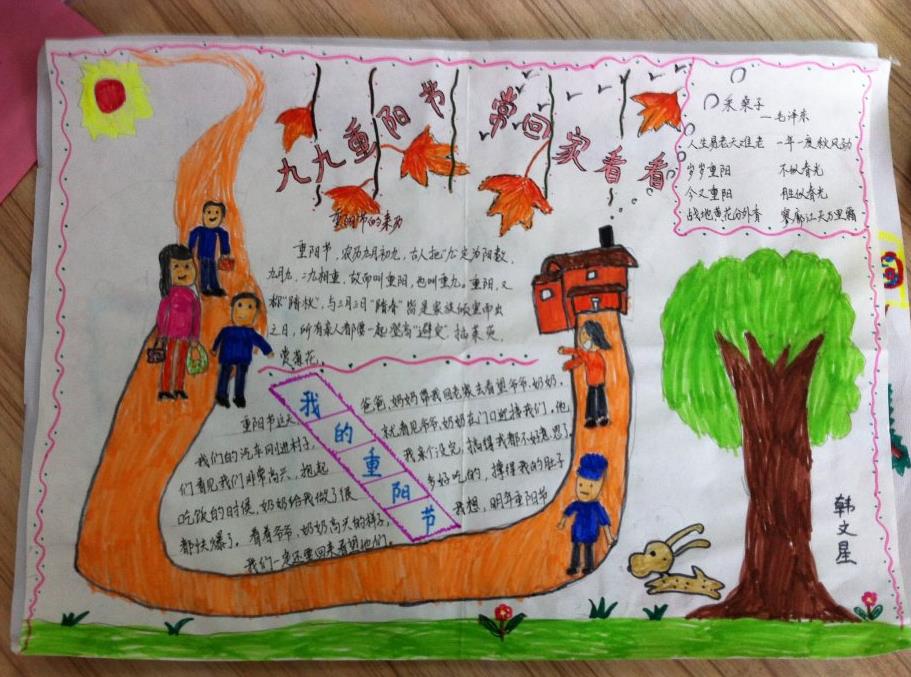 九九重阳节 常回家看看
采桑子
—毛泽东
人生易老天难老 一年一度秋风劲
岁岁重阳 不似春光
今又重阳 胜似春光
战地黄花分外香 寥廓江天万里霜
重阳节的来历
重阳节，农历九月初九，古人把"九"定为阳数，
九月九，二九相重，故而叫重阳，也叫重九。重阳，又
称"踏秋"，与三月三日"踏春"皆是家族倾室而出
之日，所有亲人都要一起登高"避灾"，插茱萸，
赏菊花。
我的重阳节
重阳节这天 爸爸、妈妈带我回老家去看望爷爷、奶奶，
我们的汽车刚进村子， 就看见爷爷、奶奶在门口迎接我们，他
们看见我们非常高兴，抱起 我亲个没完，搞得我都不好意思了。
吃饭的时候，奶奶给我做了很 多好吃的，撑得我的肚子
都快爆了。看着爷爷、奶奶高兴的样子， 我想，明年重阳节
我们一定还要回来看望他们。
韩文星